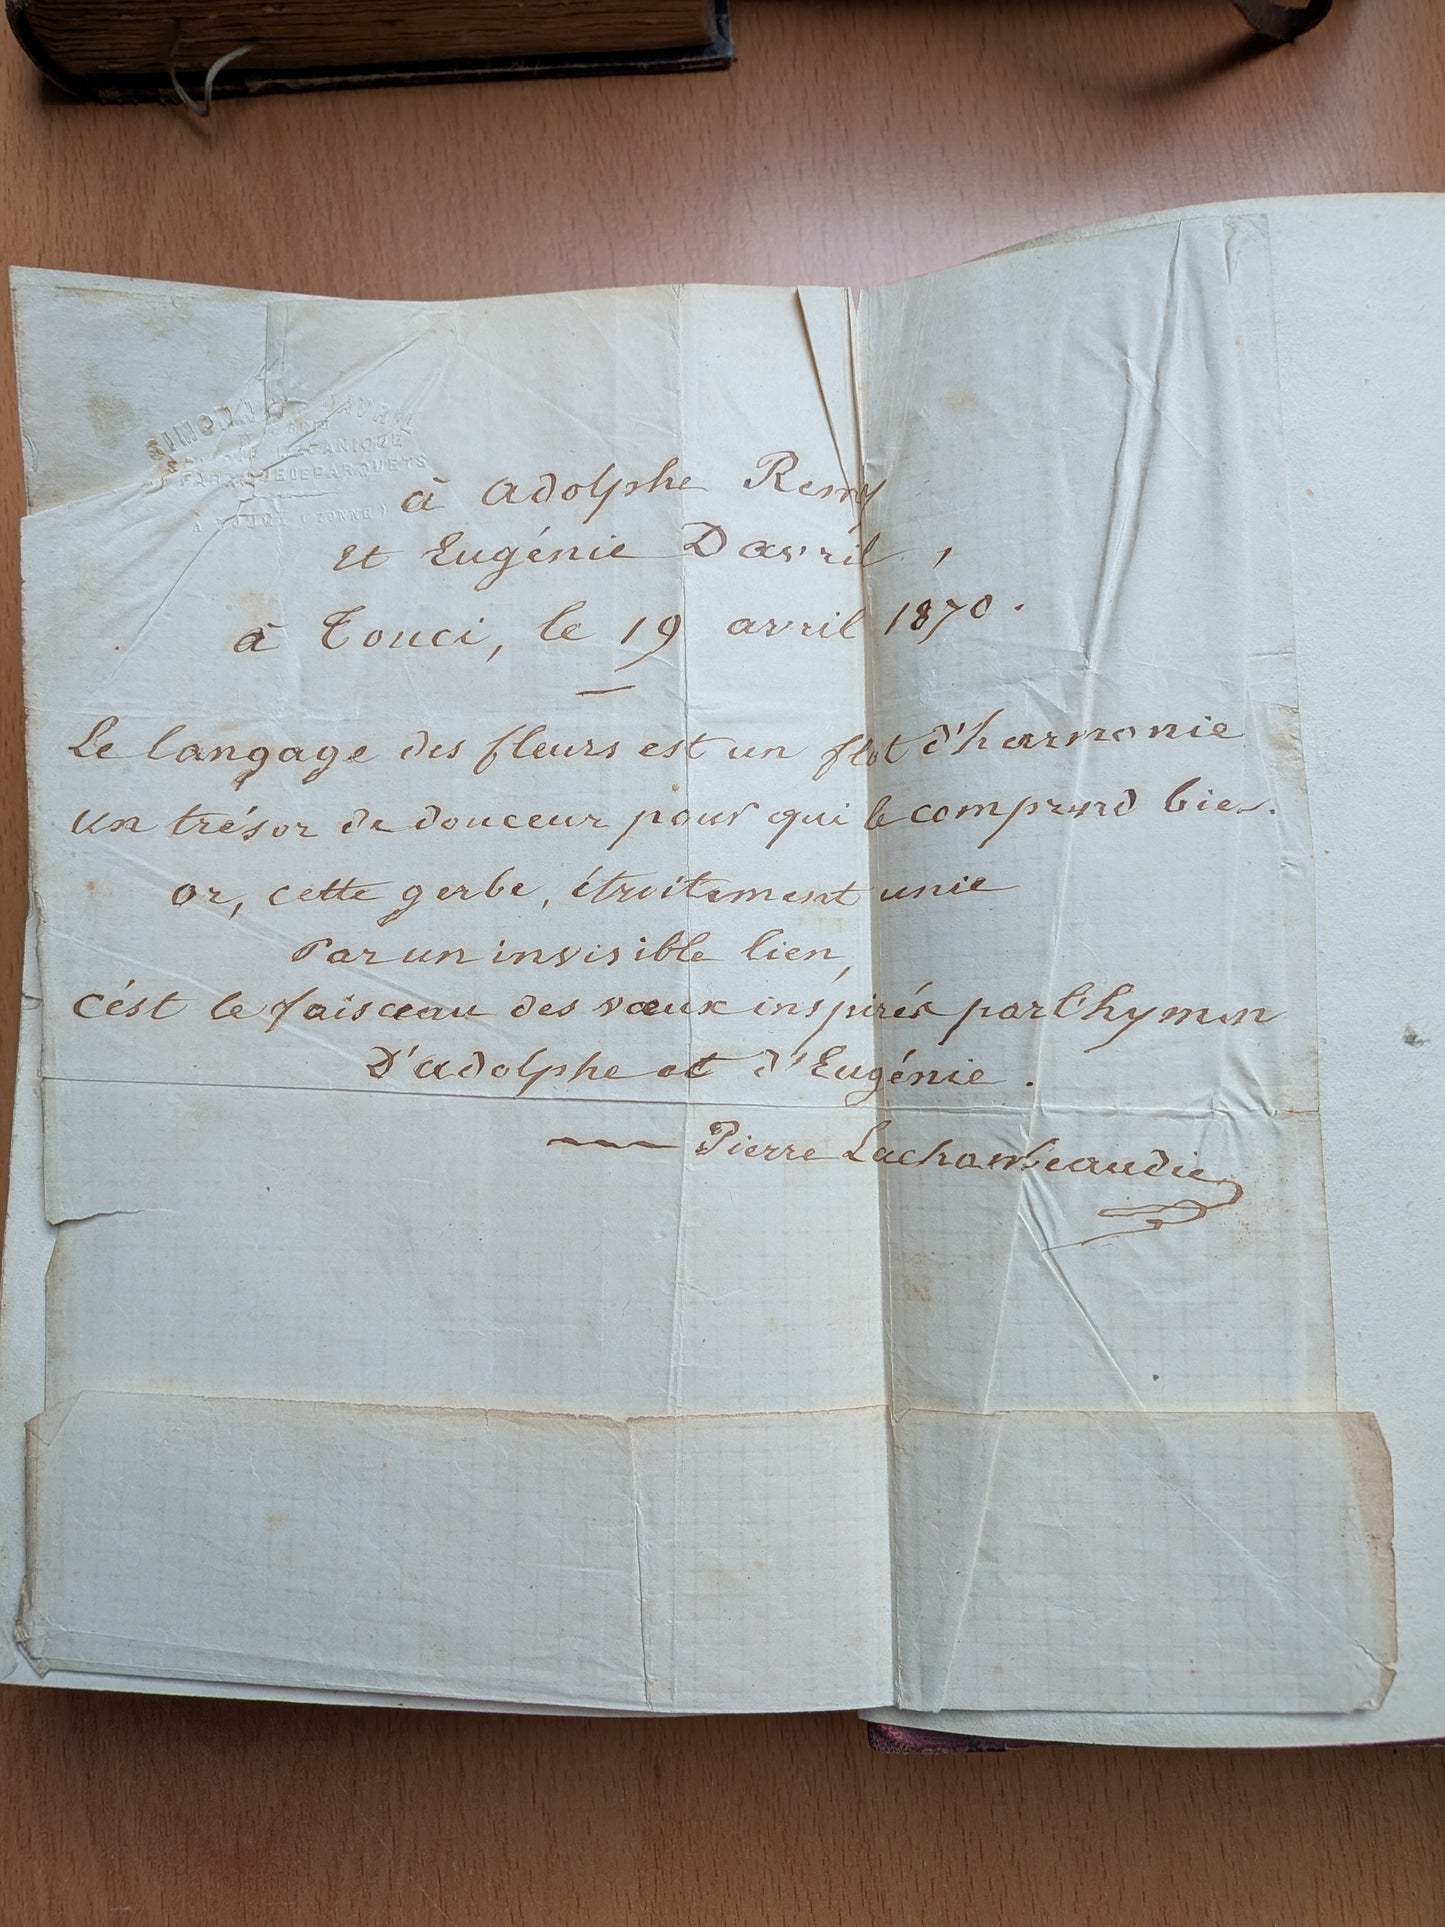 SIMON
MÉCANIQUE
FABRIQUE DE PARQUETS
À TOUCI (YONNE)
à Adolphe Remy
et Eugénie Davril,
à Touci, le 19 avril 1870.
Le langage des fleurs est un flot d'harmonie
un trésor de douceur pour qui le comprend bien.
or, cette gerbe, étroitement unie
Par un invisible lien,
C'est le faisceau des vœux inspirés par l'hymen
D'adolphe et d'Eugénie.
Pierre Lachambeaudie